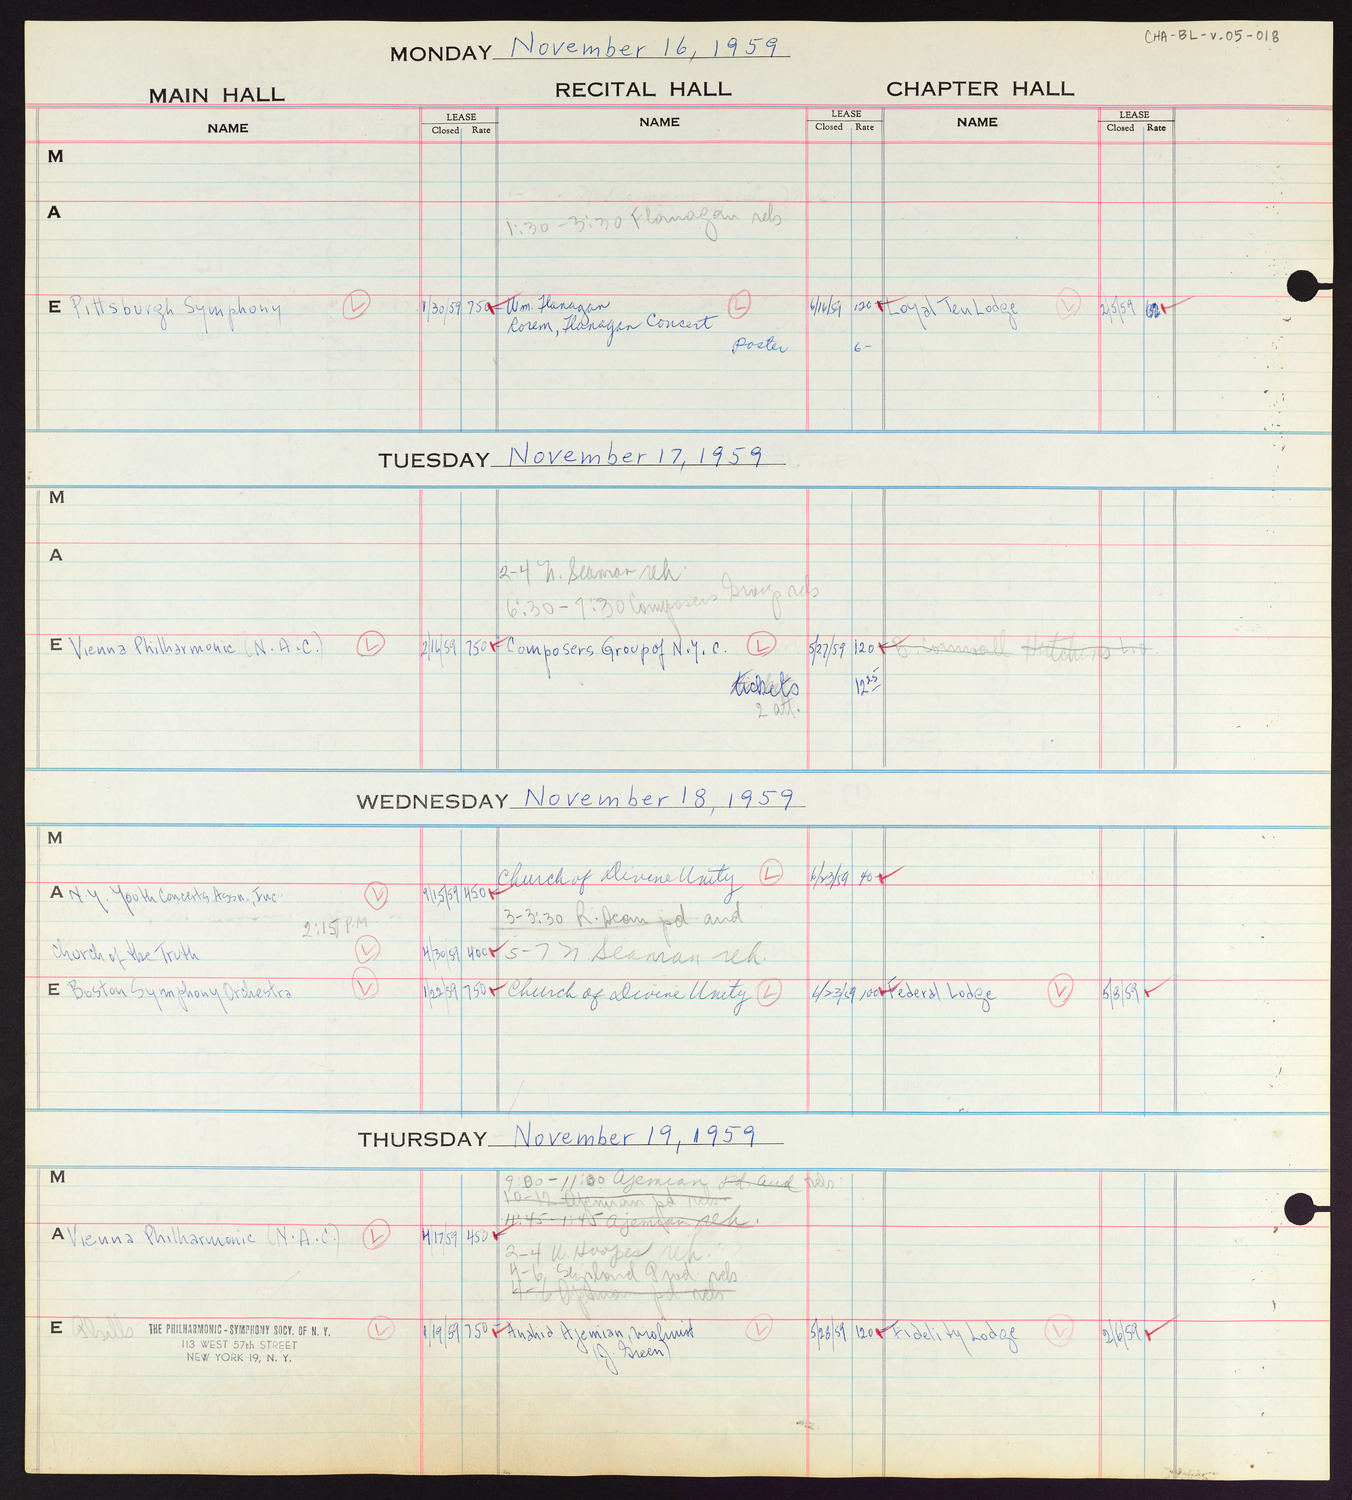 CHA-BL-V.05-018
MONDAY November 16, 1959
MAIN HALL RECITAL HALL CHAPTER HALL
NAME LEASE Closed Rate NAME LEASE Closed Rate NAME LEASE Closed Rate
M
A
1:30-3:30 Flanagan reh
E Pittsburgh Symphony L 1/30/59 750 Wm. Flanagan L 6/16/59 120 Loyal Ten Lodge L 2/5/59
Rorem, Flanagan Concert
Poster 6-
TUESDAY November 17, 1959
M
A
2-4 N. Seaman reh.
6:30-7:30 Composers Group reh
E Vienna Philharmonic (N.A.C.) L 2/16/59 750 Composers Group of N.Y.C. L 5/27/59 120 Cornwall Hutchins
tickets 12 25
2 att.
WEDNESDAY November 18, 1959
M
Church of Divine Unity L 6/23/59 40
A N.Y. Youth Concerts Assn. Inc. V 9/15/59 450
3-3:30 R. Dean pd. aud
2:15 P.M
Church of the Truth L 4/30/59 400 5-7 N. Seaman reh.
E Boston Symphony Orchestra V 1/22/59 750 Church of Divine Unity L 6/23/59 100 Federal Lodge V 5/8/59
THURSDAY November 19, 1959
M
9:00-11:00 Ajemian pd aud reh
10-12 Ajemian pd reh
11:45-1:45 Ajemian reh.
A Vienna Philharmonic (N.A.C.) L 4/17/59 450
2-4 W. Hooper reh.
4-6 Prod. reh
4-6 Ajemian pd reh
E THE PHILHARMONIC-SYMPHONY SOCY. OF N. Y. L 1/19/59 750 Anahid Ajemian, Violinist L 5/28/59 120 Fidelity Lodge V 2/6/59
113 WEST 57th STREET (J. Green)
NEW YORK 19, N. Y.